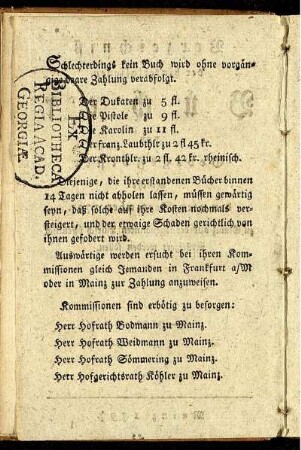 Schlechterdings kein Buch wird ohne vorgän-
gige baare Zahlung verabfolgt.
Der Dukaten zu 5 fl.
Die Pistole zu 9 fl.
Die Karolin zu 11 fl.
Der franz. Laubthlr zu 2 fl 45 kr.
Der Kronthlr. zu 2 fl. 42 kr. rheinisch.
Diejenige, die ihre erstandenen Bücher binnen
14 Tagen nicht abholen lassen, müssen gewärtig
seyn, daß solche auf ihre Kosten nochmals ver-
steigert, und der etwaige Schaden gerichtlich von
ihnen gefodert wird.
Auswärtige werden ersucht bei ihren Kom-
missionen gleich Jemanden in Frankfurt a/M
oder in Mainz zur Zahlung anzuweisen.
Kommissionen sind erbötig zu besorgen:
Herr Hofrath Bodmann zu Mainz.
Herr Hofrath Weidmann zu Mainz.
Herr Hofrath Sömmering zu Mainz.
Herr Hofgerichtsrath Köhler zu Mainz.
EX
BIBLIOTHECA
REGIA ACAD.
GEORGIÆ